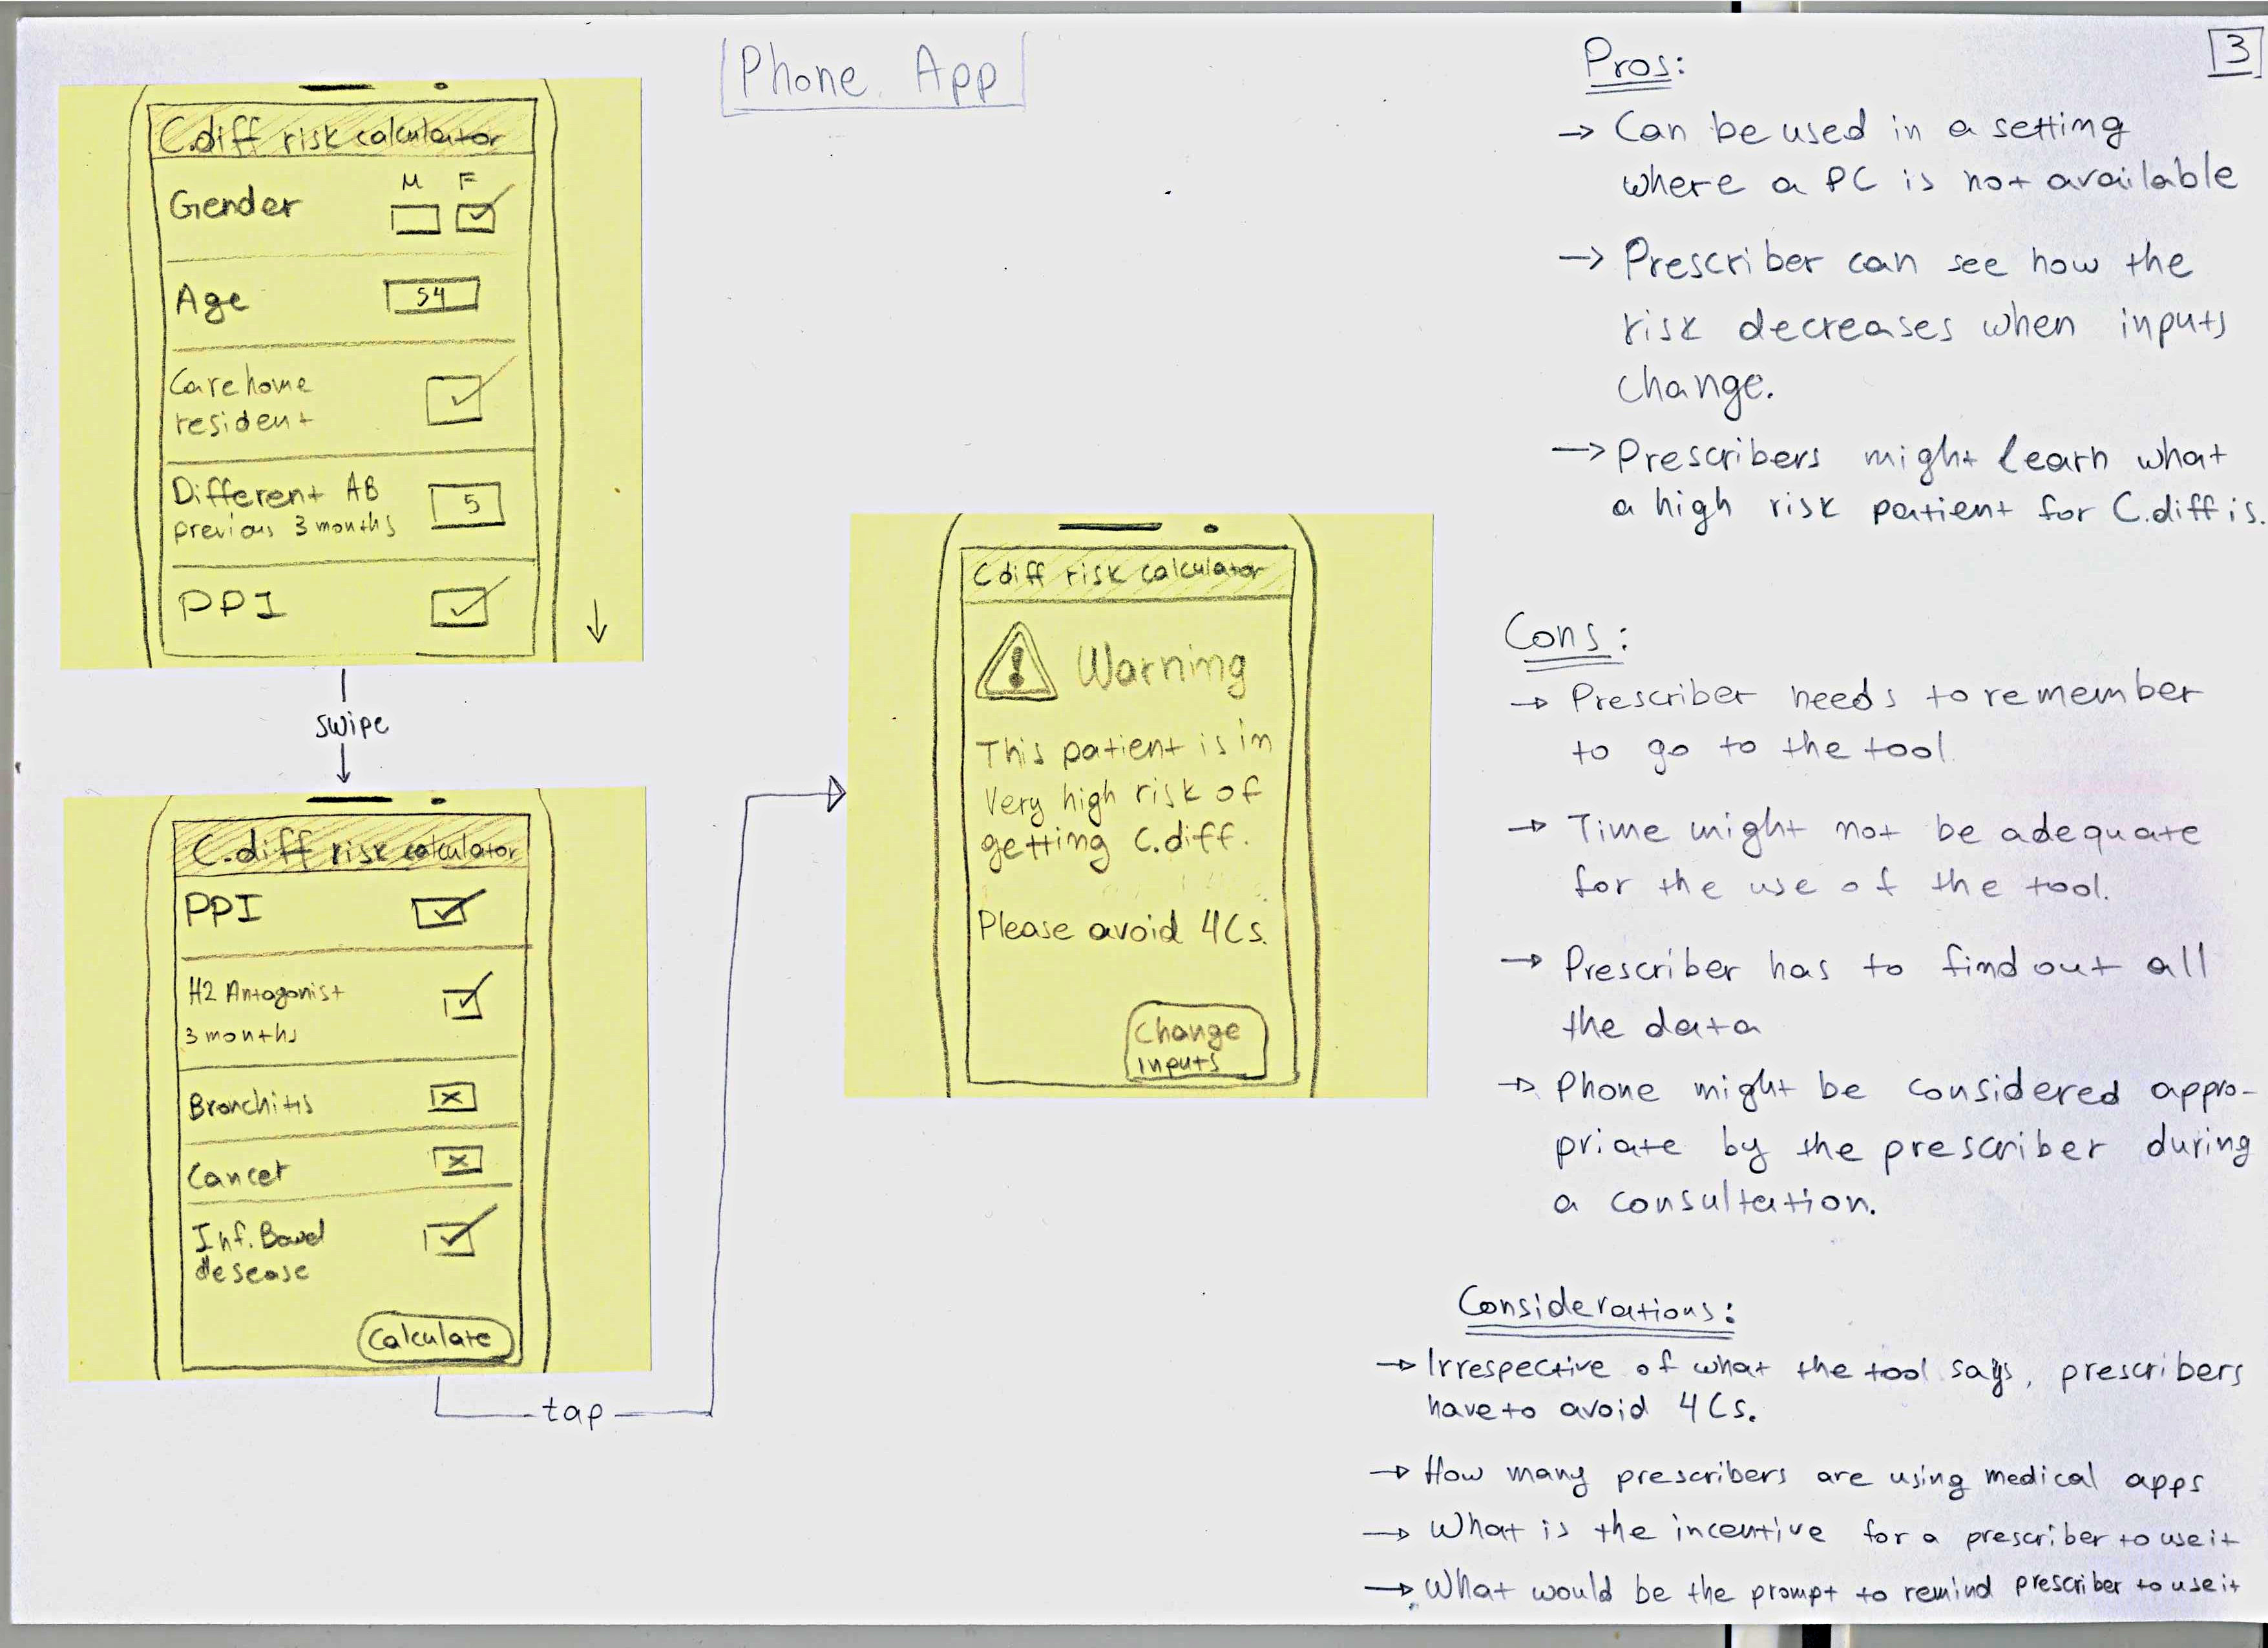 Phone App
3
C.diff risk calculator
M F
Gender
Age 54
Care home
resident
Different AB 5
previous 3 months
PPI
swipe
C.diff risk calculator
PPI
H2 Antagonist
3 months
Bronchitis x
Cancer x
Inf. Bowel
desease
Calculate
tap
C diff risk calculator
! Warning
This patient is in
very high risk of
getting C.diff.
Please avoid 4Cs.
Change
inputs
Pros:
→ Can be used in a setting
where a PC is not available
→ Prescriber can see how the
risk decreases when inputs
change.
→ Prescribers might learn what
a high risk patient for C.diff is.
Cons:
→ Prescriber needs to remember
to go to the tool.
→ Time might not be adequate
for the use of the tool.
→ Prescriber has to find out all
the data
→ Phone might be considered appro-
priate by the prescriber during
a consultation.
Considerations:
→ Irrespective of what the tool says, prescribers
have to avoid 4Cs.
→ How many prescribers are using medical apps
→ What is the incentive for a prescriber to use it
→ What would be the prompt to remind prescriber to use it